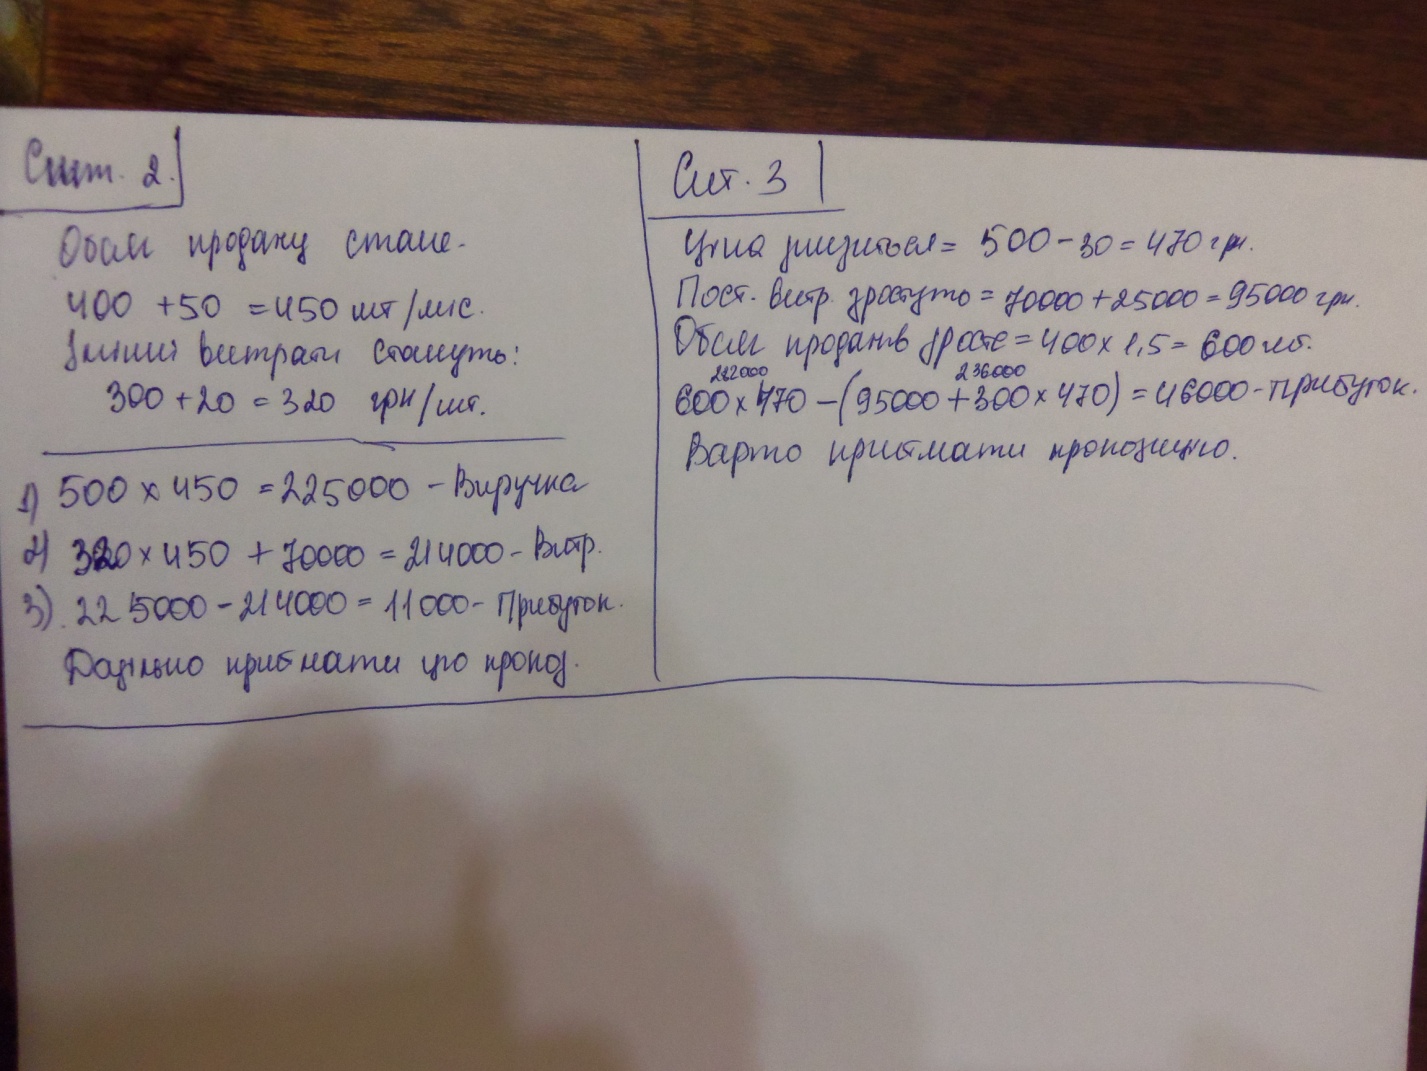 Сит. 2.
Обсяг продажу стане.
400 + 50 = 450 шт/міс.
Змінні витрати стануть:
300 + 20 = 320 грн/шт.
1) 500 x 450 = 225000 - Виручка
2) 320 x 450 + 70000 = 214000 - Витр.
3). 225000 - 214000 = 11000 - Прибуток.
Доцільно приймати цю пропоз.
Сит. 3
Ціна знизиться = 500 - 30 = 470 грн.
Пост. витр. зростуть = 70000 + 25000 = 95000 грн.
Обсяг продажів зросте = 400 x 1,5 = 600 шт.
282000 236000
600 x 470 - (95000 + 300 x 470) = 46000 - Прибуток.
Варто приймати пропозицію.